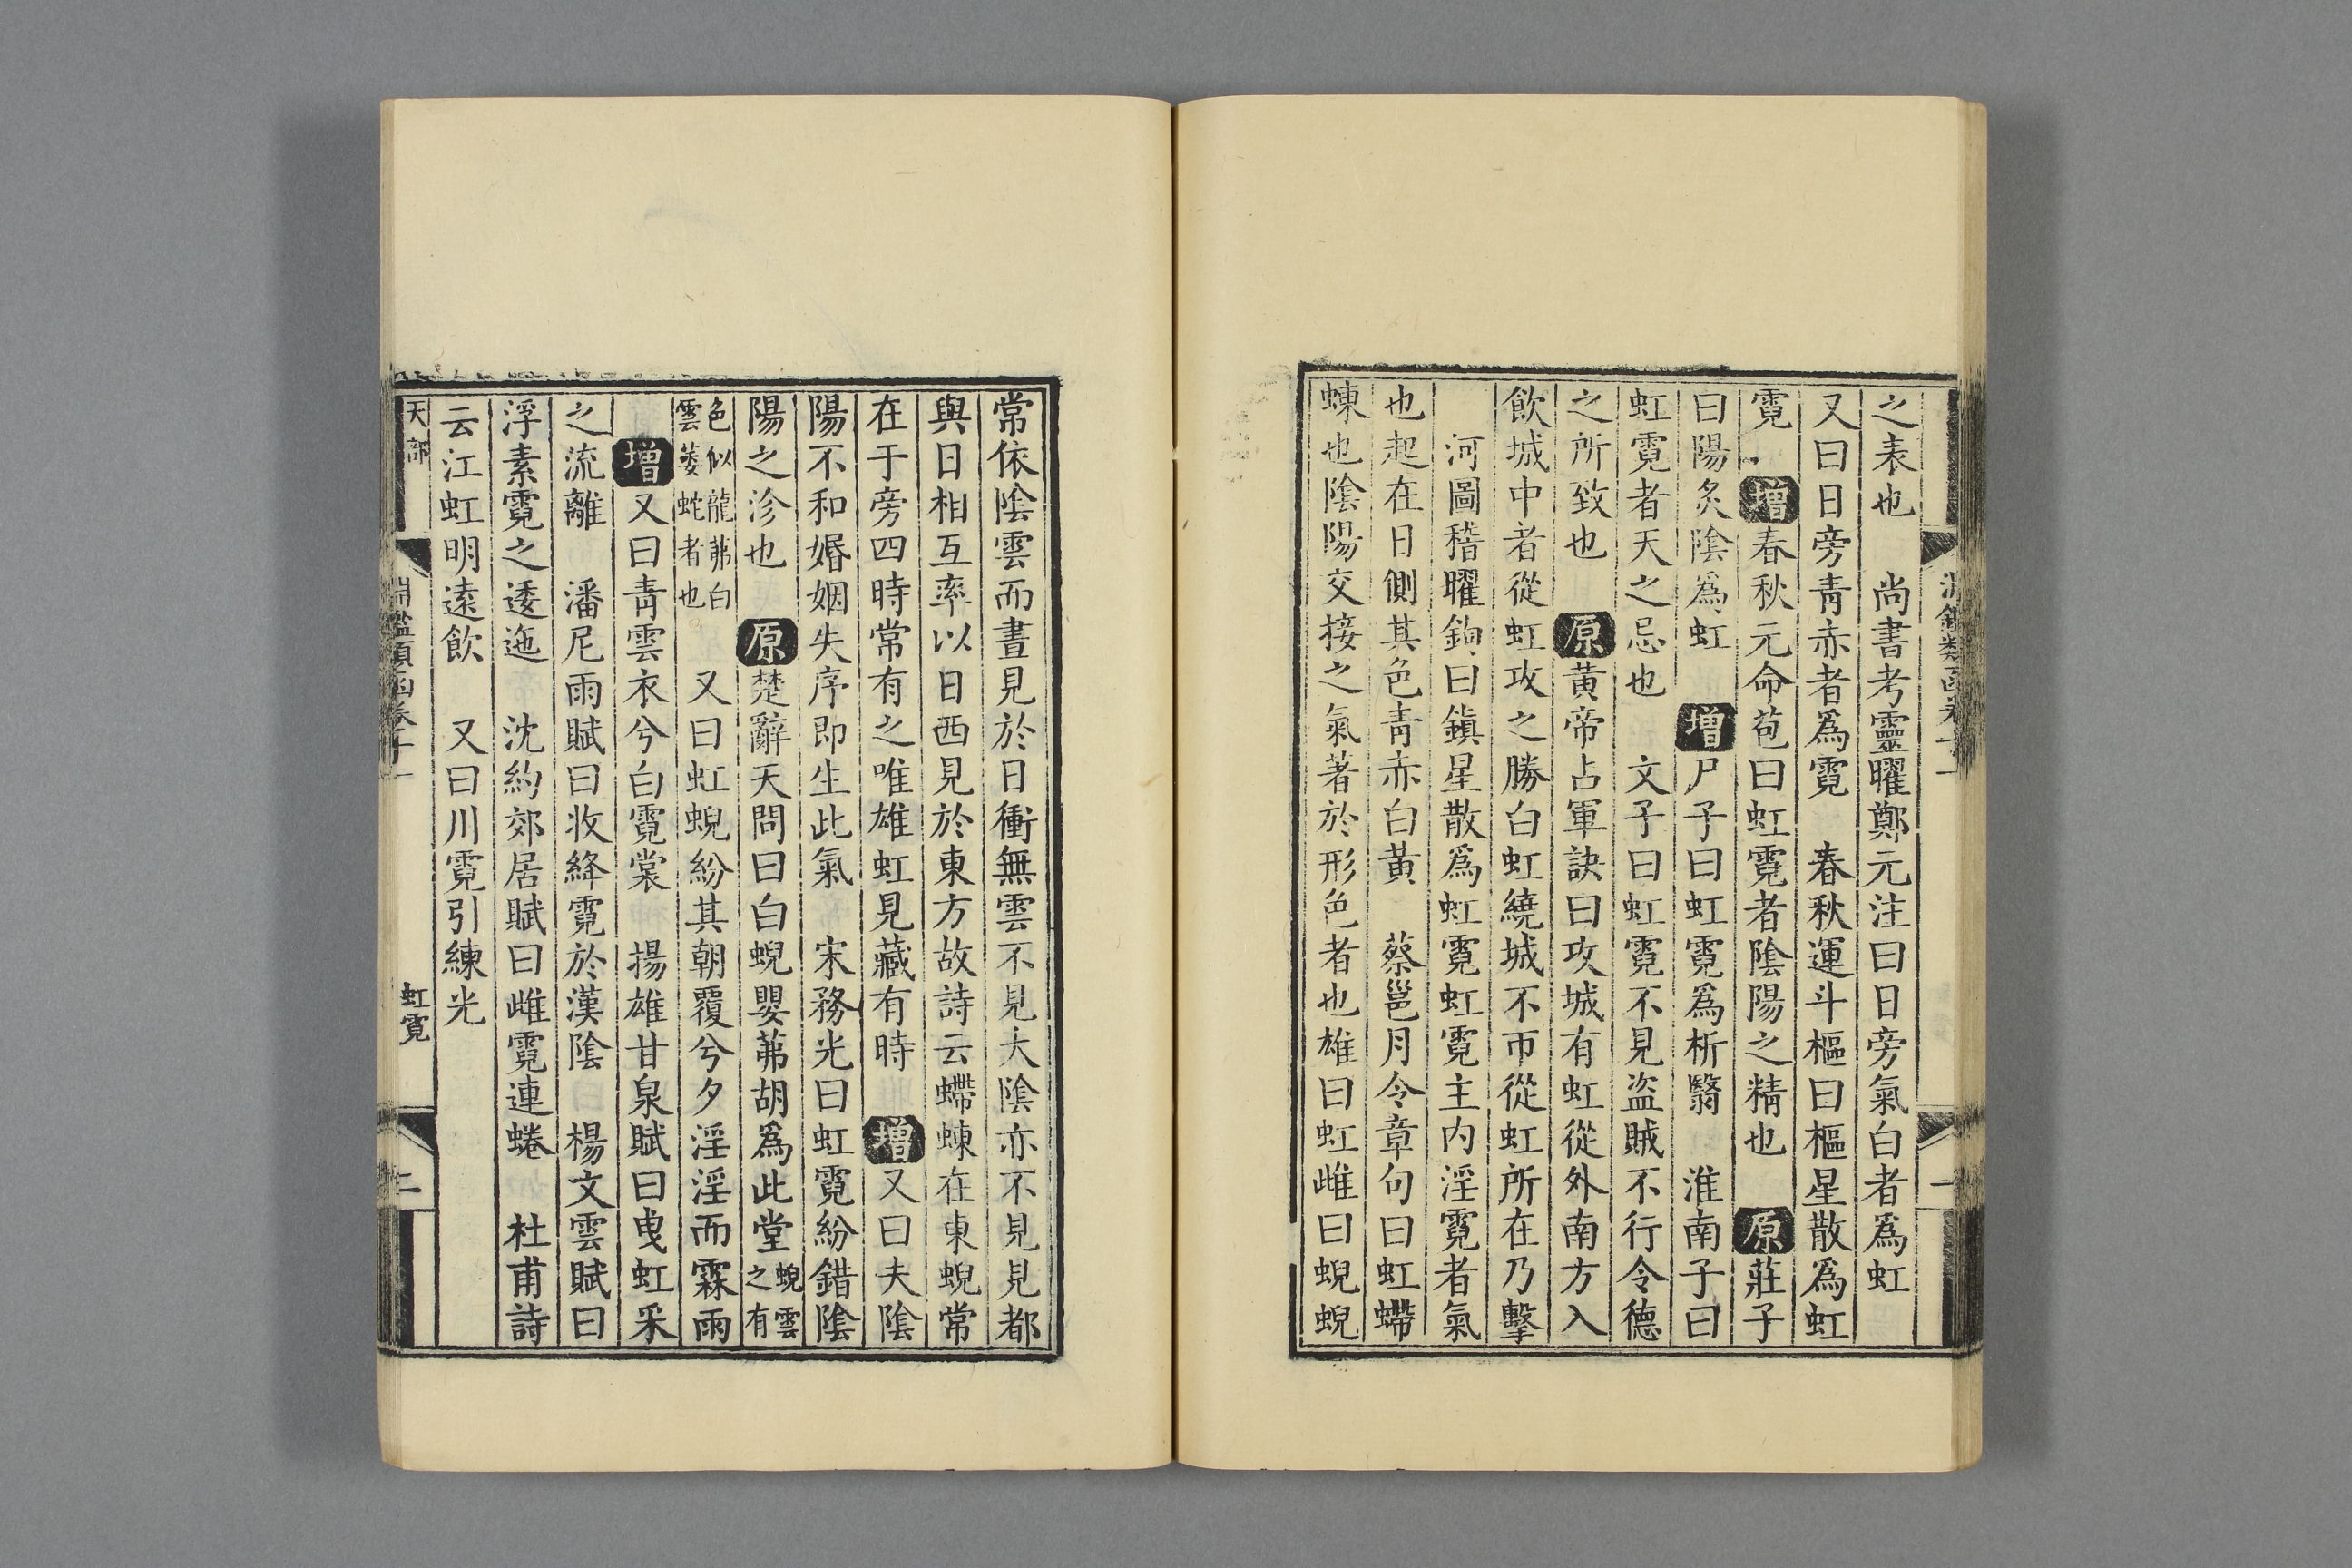 之表也　尚書考靈曜鄭元注曰日旁氣白者爲虹
又曰日旁靑赤者爲霓　春秋運斗樞曰樞星散爲虹
霓　增春秋元命苞曰虹霓者陰陽之精也　原莊子
曰陽炙陰爲虹　增尸子曰虹霓爲析翳　淮南子曰
虹霓者天之忌也　文子曰虹霓不見盜賊不行令德
之所致也　原黃帝占軍訣曰攻城有虹從外南方入
飮城中者從虹攻之勝白虹繞城不帀從虹所在乃擊
　河圖稽曜鉤曰鎭星散爲虹霓虹霓主內淫霓者氣
也起在日側其色靑赤白黃　蔡邕月令章句曰虹螮
蝀也陰陽交接之氣著於形色者也雄曰虹雌曰蜺蜺
常依陰雲而晝見於日衝無雲不見大陰亦不見見都
與日相互率以日西見於東方故詩云螮蝀在東蜺常
在于旁四時常有之唯雄虹見藏有時　增又曰夫陰
陽不和婚姻失序即生此氣　宋務光曰虹霓紛錯陰
陽之沴也　原楚辭天問曰白蜺嬰茀胡爲此堂蜺雲之有
色似龍茀白雲萎蛇者也　又曰虹蜺紛其朝覆兮夕淫淫而霖雨
　增又曰靑雲衣兮白霓裳　揚雄甘泉賦曰曳虹采
之流離　潘尼雨賦曰收絳霓於漢陰　楊文雲賦曰
浮素霓之逶迤　沈約郊居賦曰雌霓連蜷　杜甫詩
云江虹明遠飮　又曰川霓引練光
天部
淵鑑類函卷十一
虹霓
二